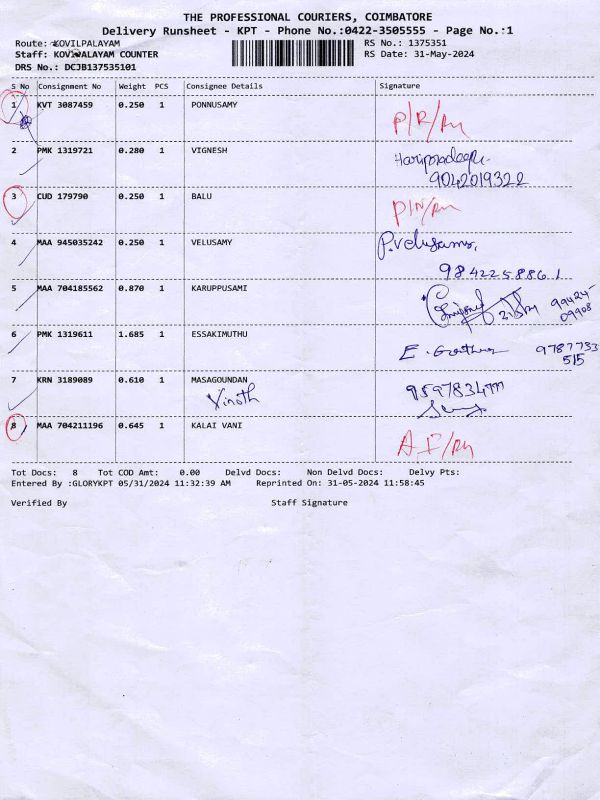 THE PROFESSIONAL COURIERS, COIMBATORE
Delivery Runsheet - KPT - Phone No.:0422-3505555 - Page No.:1
Route: KOVILPALAYAM RS No.: 1375351
Staff: KOVILPALAYAM COUNTER RS Date: 31-May-2024
DRS No.: DCJB137535101
S No Consignment No Weight PCS Consignee Details Signature
1 KVT 3087459 0.250 1 PONNUSAMY
P/R/
2 PMK 1319721 0.280 1 VIGNESH Haripradeep
9042019322
3 CUD 179790 0.250 1 BALU P/N/
4 MAA 945035242 0.250 1 VELUSAMY P.velusamy,
9842258861
5 MAA 704185562 0.870 1 KARUPPUSAMI 99425-
09908
6 PMK 1319611 1.685 1 ESSAKIMUTHU E. 9787733
515
7 KRN 3189089 0.610 1 MASAGOUNDAN
Vinoth
8 MAA 704211196 0.645 1 KALAI VANI
Tot Docs: 8 Tot COD Amt: 0.00 Delvd Docs: Non Delvd Docs: Delvy Pts:
Entered By :GLORYKPT 05/31/2024 11:32:39 AM Reprinted On: 31-05-2024 11:58:45
Verified By Staff Signature